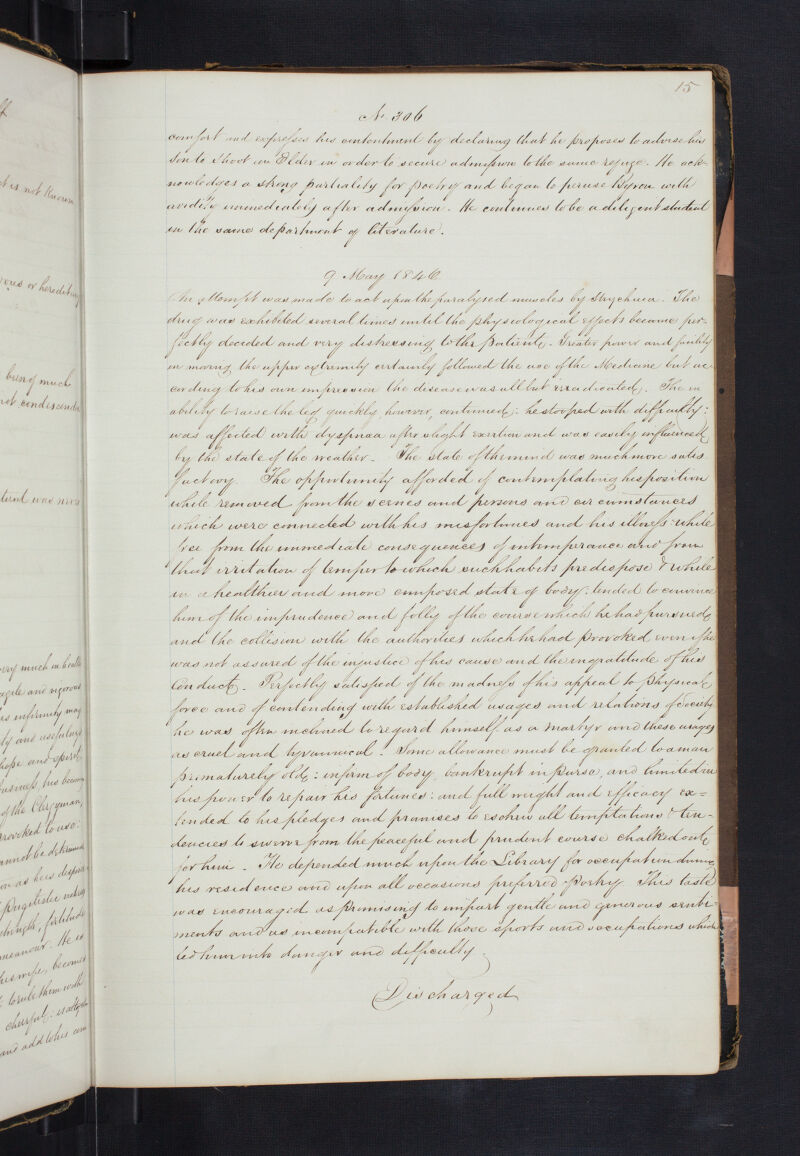 15
No. 306
comfort and expresses his contentment by declaring that he proposes to advise his
son to shoot an Elder in order to secure admission to the same refuge. He ack-
nowledges a strong partiality for poetry and began to peruse Byron with
avidity immediately after admission. He continues to be a diligent student
in the same department of literature.
9 May 1846
An attempt was made to act upon the paralysed muscles by Strychnia. The
drug was exhibited several times until the physiological effects became per-
fectly decided and very distressing to the patient. Greater power and facility
in moving the upper extremity certainly followed the use of the Medicine but ac
cording to his own impression the disease was all but erradicated. The in
ability to raise the leg quickly, however, continued; he stooped with difficulty:
was affected with dyspnaa after slight exertion and was easily influenced
by the state of the weather. The state of the mind was much more satis
factory. The opportunity afforded of contemplating his position
while removed from the scenes and persons and circumstances
which were connected with his misfortunes and his illness while
free from the immediate consequences of intemperance and from
that irritation of temper to which such habits predispose & while
in a healthier and more composed state of body: tended to convince
him of the imprudence and folly of the course which he had pursued,
and the collision with the authorities which he had provoked even if he
was not assured of the injustice of his cause and the ingratitude of his
Conduct. Perfectly satisfied of the madness of his appeal to physical
force and of contending with established usages and relations of society
he was often inclined to regard himself as a martyr and these usages
as cruel and tyrannical. Some allowance must be granted to a man
prematurely old: infirm of body, bankrupt in purse, and limited in
his power to repair his fortunes: and full weight and efficacy ex=
tended to his pledges and promises to eschew all temptations & ten-
dencies to swerve from the peaceful and prudent course chalked out
for him. He depended much upon the Library for occupation during
his residence and upon all occasions preferred poetry. This taste
was encouraged as promising to impart gentle and generous senti-
ments and as incompatible with those sports and occupations which
led him into danger and difficulty.
Discharged